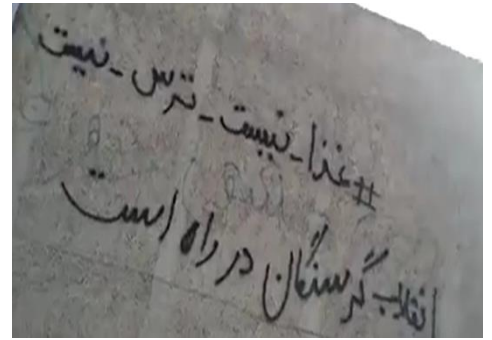 #غذا_نیست_ترس_نیست
انقلاب گرسنگان در راه است